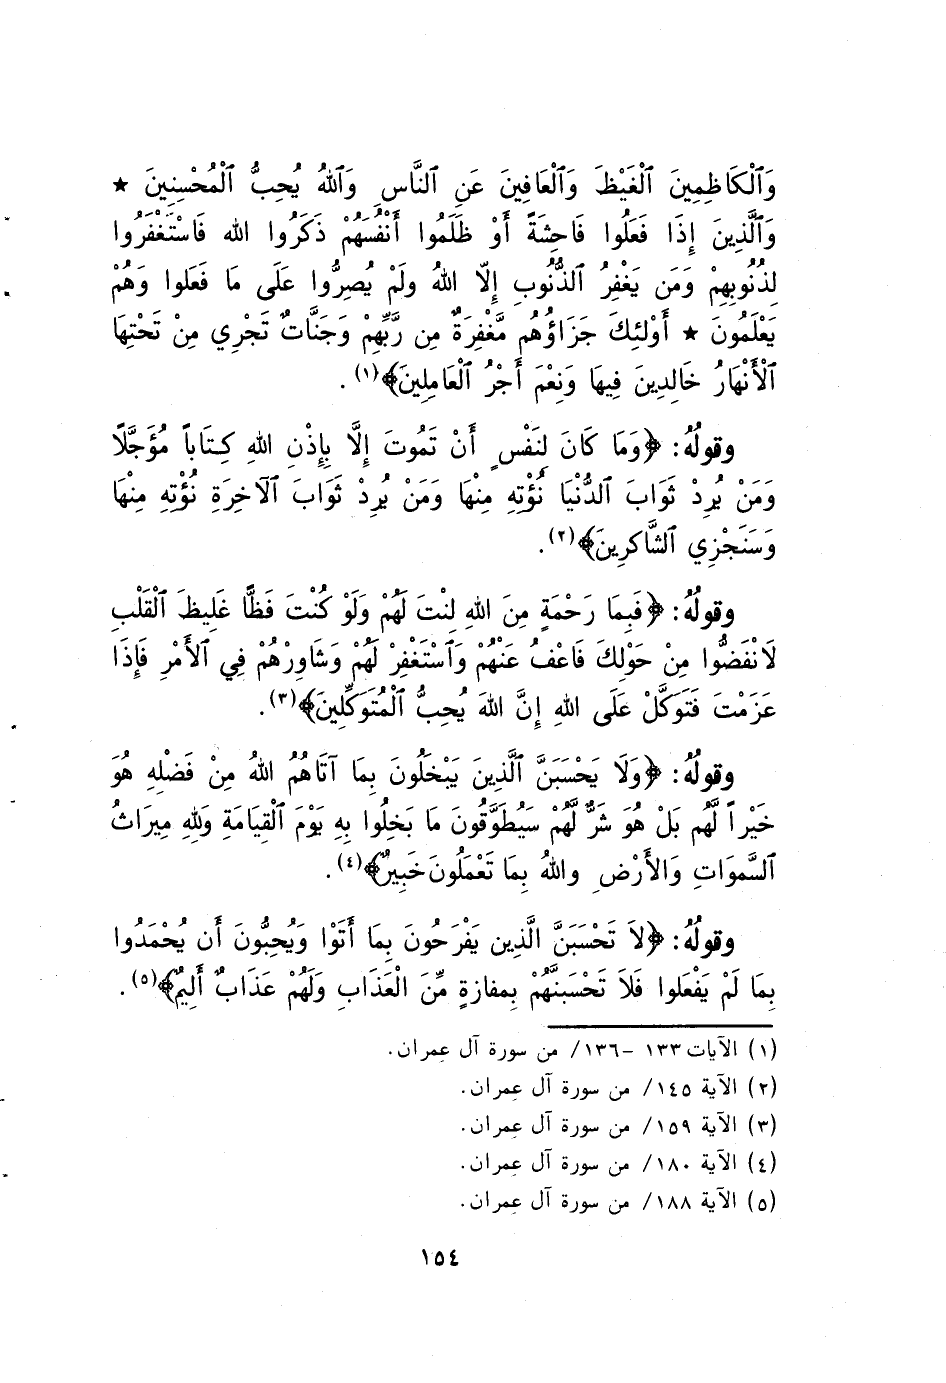 وَٱلْكَاظِمِينَ ٱلْغَيْظَ وَٱلْعَافِينَ عَنِ ٱلنَّاسِ وَٱللهُ يُحِبُّ ٱلْمُحْسِنِينَ ★
وَٱلَّذِينَ إِذَا فَعَلُوا فَاحِشَةً أَوْ ظَلَمُوا أَنْفُسَهُمْ ذَكَرُوا الله فَاسْتَغْفَرُوا
لِذُنُوبِهِمْ وَمَن يَغْفِرُ ٱلذُّنُوبِ إِلّا اللهُ ولَمْ يُصِرُّوا عَلَى مَا فَعَلوا وَهُمْ
يَعْلَمُونَ ★ أَوْلئِكَ جَزَاؤُهُم مَّغْفِرَةٌ مِن رَّبِّهِمْ وَجَنَّاتٌ تَجْرِي مِنْ تَحْتِهَا
ٱلْأَنْهَارُ خَالِدِينَ فِيهَا وَنِعْمَ أَجْرُ ٱلْعَامِلِينَ﴾(١) .
وقولُهُ: ﴿وَمَا كَانَ لِنَفْسٍ أَنْ تَمُوتَ إِلَّا بِإِذْنِ اللهِ كِتَاباً مُؤَجَّلًا
وَمَنْ يُرِدْ ثَوَابَ ٱلدُّنْيَا نُؤْتِهِ مِنْهَا وَمَنْ يُرِدْ ثَوَابَ ٱلآخِرَةِ نُؤْتِهِ مِنْهَا
وَسَنَجْزِي ٱلشَّاكِرِينَ﴾(٢) .
وقولُهُ: ﴿فَبِمَا رَحْمَةٍ مِنَ اللهِ لِنْتَ لَهُمْ وَلَوْ كُنْتَ فَظًّا غَلِيظَ ٱلْقَلْبِ
لَانْفَضُّوا مِنْ حَوْلِكَ فَاعْفُ عَنْهُمْ وَٱسْتَغْفِرْ لَهُمْ وَشَاوِرْهُمْ فِي ٱلأَمْرِ فَإِذَا
عَزَمْتَ فَتَوَكَّلْ عَلَى اللهِ إِنَّ اللهَ يُحِبُّ ٱلْمُتَوَكِّلِينَ﴾(٣) .
وقولُهُ: ﴿وَلَا يَحْسَبَنَّ ٱلَّذِينَ يَبْخَلُونَ بِمَا آتَاهُمُ اللهُ مِنْ فَضْلِهِ هُوَ
خَيْراً لَّهُم بَلْ هُوَ شَرٌّ لَّهُمْ سَيُطَوَّقُونَ مَا بَخِلُوا بِهِ يَوْمَ ٱلْقِيَامَةِ وَلِلهِ مِيرَاثُ
ٱلسَّموَاتِ وَالأَرْضِ واللهُ بِمَا تَعْمَلُونَ خَبِيرٌ﴾(٤) .
وقولُهُ: ﴿لاَ تَحْسَبَنَّ الَّذِين يَفْرَحُونَ بِمَا أَتَوْا وَيُحِبُّونَ أَن يُحْمَدُوا
بِمَا لَمْ يَفْعَلوا فَلاَ تَحْسَبَنَّهُمْ بِمفازةٍ مِّنَ الْعَذَابِ وَلَهُمْ عَذَابٌ أَلِيمٌ﴾(٥) .
(١) الآيات ١٣٣ –١٣٦/ من سورة آل عمران.
(٢) الآية ١٤٥/ من سورة آل عمران.
(٣) الآية ١٥٩/ من سورة آل عمران.
(٤) الآية ١٨٠/ من سورة آل عمران.
(٥) الآية ١٨٨/ من سورة آل عمران.
١٥٤